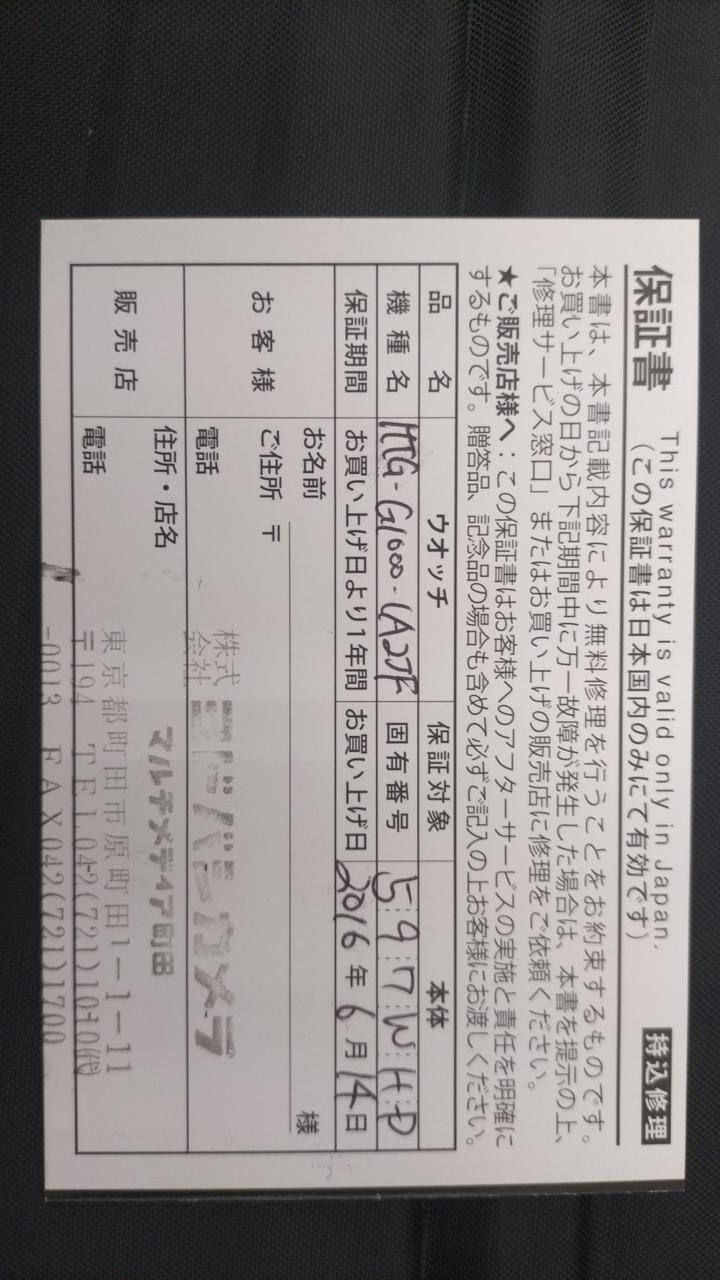 保証書
This warranty is valid only in Japan.
（この保証書は日本国内のみにて有効です）
持込修理
本書は、本書記載内容により無料修理を行うことをお約束するものです。
お買い上げの日から下記期間中に万一故障が発生した場合は、本書を提示の上、
「修理サービス窓口」またはお買い上げの販売店に修理をご依頼ください。
★ご販売店様へ：この保証書はお客様へのアフターサービスの実施と責任を明確に
するものです。贈答品、記念品の場合も含めて必ずご記入の上お客様にお渡しください。
品 名 ウオッチ 保証対象 本体
機種名 MTG-G1000-1A2JF 固有番号 5:9:7:W:H:D
保証期間 お買い上げ日より1年間 お買い上げ日 2016年6月14日
お客様 お名前 様
ご住所 〒
電話
販売店 住所・店名
電話
株式会社 ヨドバシカメラ
マルチメディア町田
東京都町田市原町田1-1-11
〒194 TEL042(721)1010(代)
-0013 FAX042(721)1700